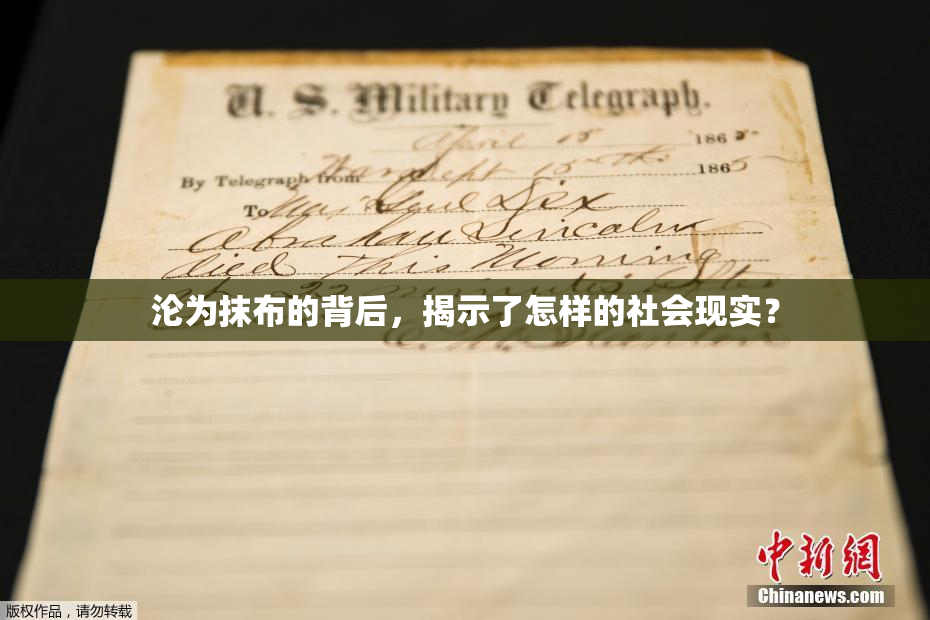 U. S. Military Telegraph.
April 15 1865
By Telegraph from War Dept 15th 1865
To Maj Genl Dix
Abraham Lincoln
died This Morning
at 22 minutes after
沦为抹布的背后，揭示了怎样的社会现实？
E. M. Stanton
中新網
Chinanews.com
版权作品，请勿转载